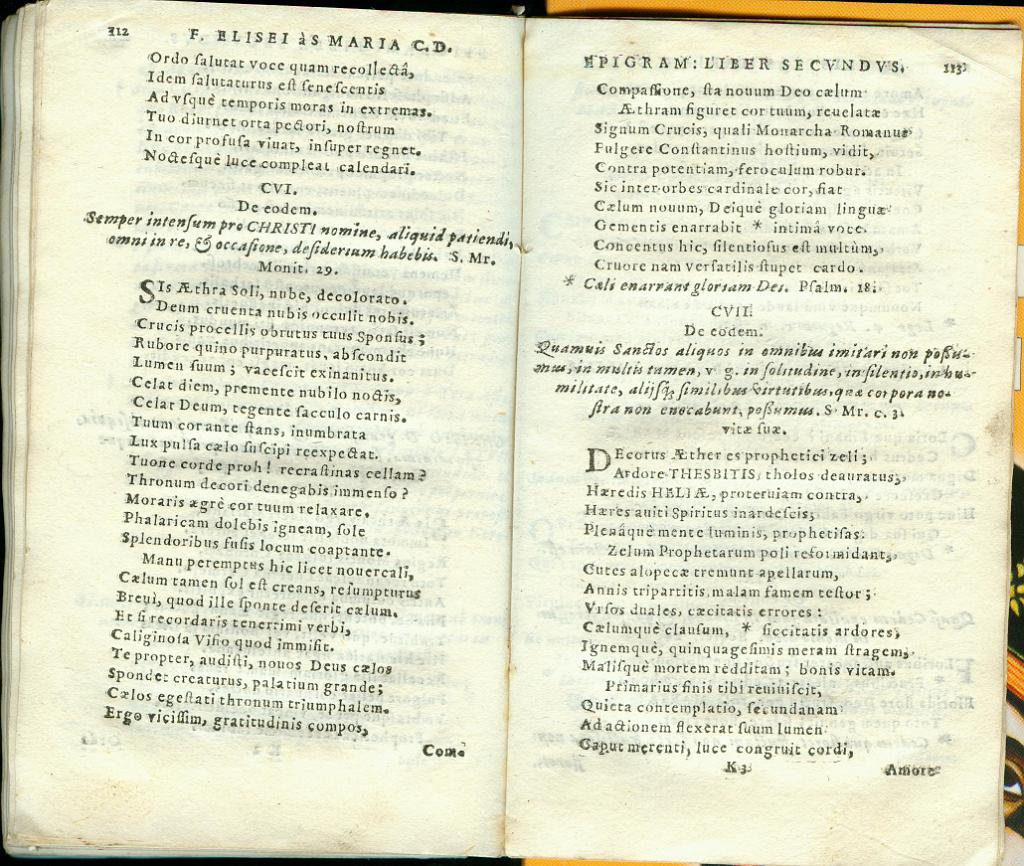 112
F. ELISEI às MARIA C.D.
Ordo ſalutat voce quam recollectâ,
Idem ſalutaturus eſt ſeneſcentis
Ad vſquè temporis moras in extremas.
Tuo diurnet orta pectori, noſtrum
In cor profuſa viuat, inſuper regnet.
Nocteſquè luce compleat calendari.
CVI.
De eodem.
Semper intenſum pro CHRISTI nomine, aliquid patiendi,
omni in re, & occaſione, deſiderium habebis. S. Mr.
Monit. 29.
SIs Æthra Soli, nube, decolorato.
Deum cruenta nubis occulit nobis.
Crucis procellis obrutus tuus Sponſus;
Rubore quino purpuratus, abſcondit
Lumen ſuum; vaceſcit exinanitus.
Celat diem, premente nubilo noctis,
Celat Deum, tegente ſacculo carnis.
Tuum cor ante ſtans, inumbrata
Lux pulſa cælo ſuſcipi reexpectat.
Tuone corde proh! recraſtinas cellam?
Thronum decori denegabis immenſo?
Moraris ægrè cor tuum relaxare.
Phalaricam dolebis igneam, ſole
Splendoribus fuſis locum coaptante.
Manu peremptus hic licet nouercali,
Cælum tamen ſol eſt creans, reſumpturus
Breui, quod ille ſponte deſerit cælum.
Et ſi recordaris tenerrimi verbi,
Caliginoſa Viſio quod immiſit.
Te propter, audiſti, nouos Deus cælos
Spondet creaturus, palatium grande;
Cælos egeſtati thronum triumphalem.
Ergo viciſſim, gratitudinis compos,
Com-
EPIGRAM: LIBER SECVNDVS. 113
Compaſſione, ſta nouum Deo cælum
Æthram figuret cor tuum, reuelatæ
Signum Crucis, quali Monarcha Romanus
Fulgere Conſtantinus hoſtium, vidit,
Contra potentiam, feroculum robur.
Sic inter orbes cardinale cor, fiat
Cælum nouum, Deiquè gloriam linguæ
Gementis enarrabit * intimâ voce.
Concentus hic, ſilentioſus eſt multùm,
Cruore nam verſatilis ſtupet cardo.
* Cæli enarrant gloriam Dei. Pſalm. 18.
CVII.
De eodem.
Quamuis Sanctos aliquos in omnibus imitari non poſſu-
mus, in multis tamen, v g. in ſolitudine, in ſilentio, in hu-
militate, alijſq; ſimilibus virtutibus, quæ corpora no-
ſtra non enecabunt, poſſumus. S Mr. c. 3.
vitæ ſuæ.
DEcorus Æther es prophetici zeli;
Ardore THESBITIS, tholos deauratus,
Hæredis HELIÆ, proteruiam contra,
Hæres auiti Spiritus inardeſcis,
Plenâquè mente luminis, prophetiſas.
Zelum Prophetarum poli reformidant,
Cutes alopecæ tremunt apellarum,
Annis tripartitis malam famem teſtor;
Vrſos duales, cæcitatis errores:
Cælumquè clauſum, * ſiccitatis ardores,
Ignemquè, quinquageſimis meram ſtragem,
Maliſquè mortem redditam; bonis vitam.
Primarius finis tibi reuiuiſcit,
Quieta contemplatio, ſecundanam
Ad actionem flexerat ſuum lumen
Caput merenti, luce congruit cordi,
K 3 Amore